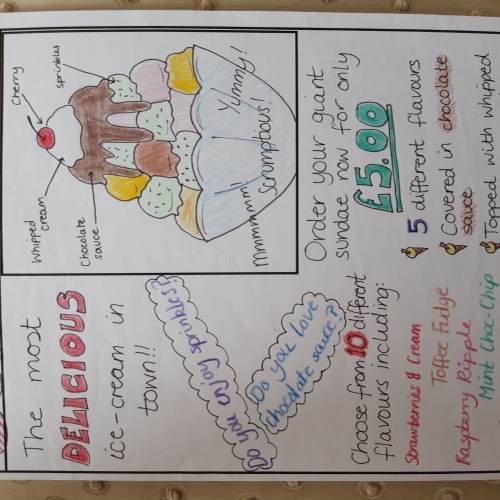 The most
DELICIOUS
ice-cream in
town!!
Cherry
sprinkles
Whipped
cream
Chocolate
sauce
Yummy!
Scrumptious!
Mmmmmmm!
Do you enjoy sprinkles?
Do you love
chocolate sauce?
Order your giant
sundae now for only
£5.00
5 different flavours
Covered in chocolate
sauce
Topped with whipped
Choose from 10 different
flavours including:
Strawberries & Cream
Toffee Fudge
Raspberry Ripple
Mint Choc-Chip